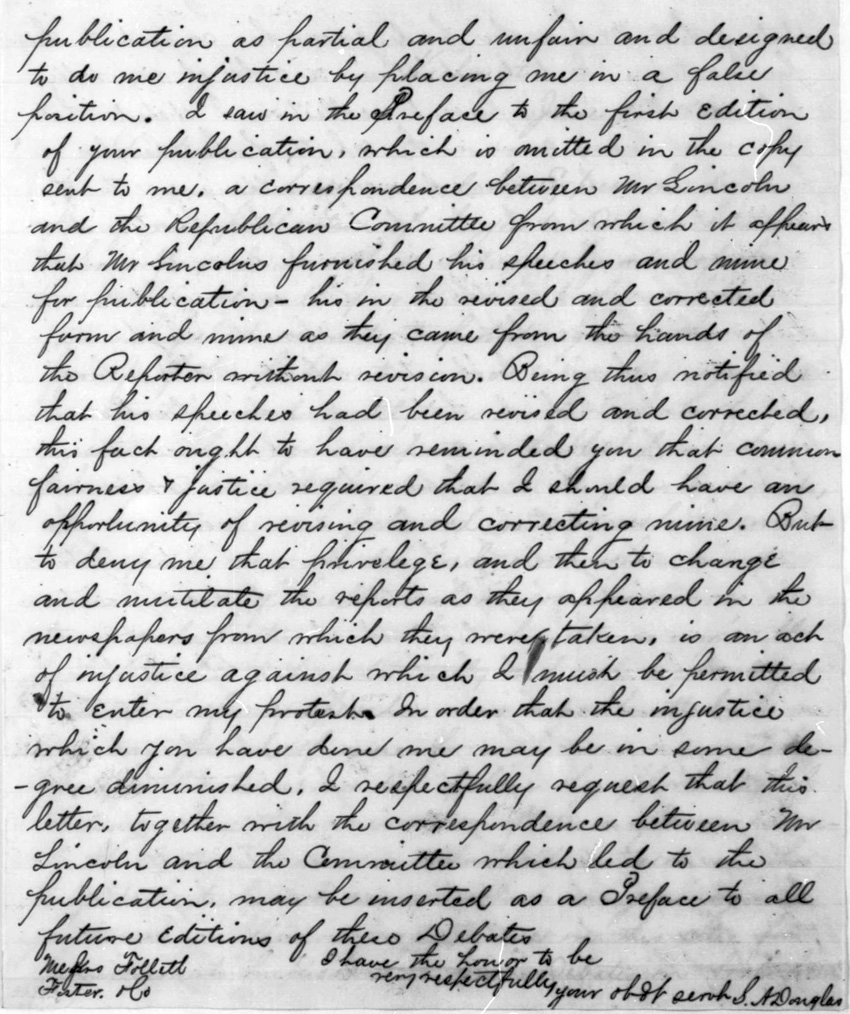 publication as partial and unfair and designed
to do me injustice by placing me in a false
position. I saw in the Preface to the first Edition
of your publication, which is omitted in the copy
sent to me, a correspondence between Mr Lincoln
and the Republican Committee from which it appears
that Mr Lincolns furnished his speeches and mine
for publication – his in the revised and corrected
form and mine as they came from the hands of
the Reporter without revision. Being thus notified
that his speeches had been revised and corrected,
this fact ought to have reminded you that common
fairness & justice required that I should have an
opportunity of revising and correcting mine. But
to deny me that privelege, and then to change
and mutilate the reports as they appeared in the
newspapers from which they were taken, is an act
of injustice against which I must be permitted
to enter my protest. In order that the injustice
which you have done me may be in some de-
-gree diminished, I respectfully request that this
letter, together with the correspondence between Mr
Lincoln and the Committee which led to the
publication, may be inserted as a Preface to all
future Editions of these Debates
I have the honor to be
Messrs Follett very respectfully
Foster. &Co your obdt servt S. A Douglas